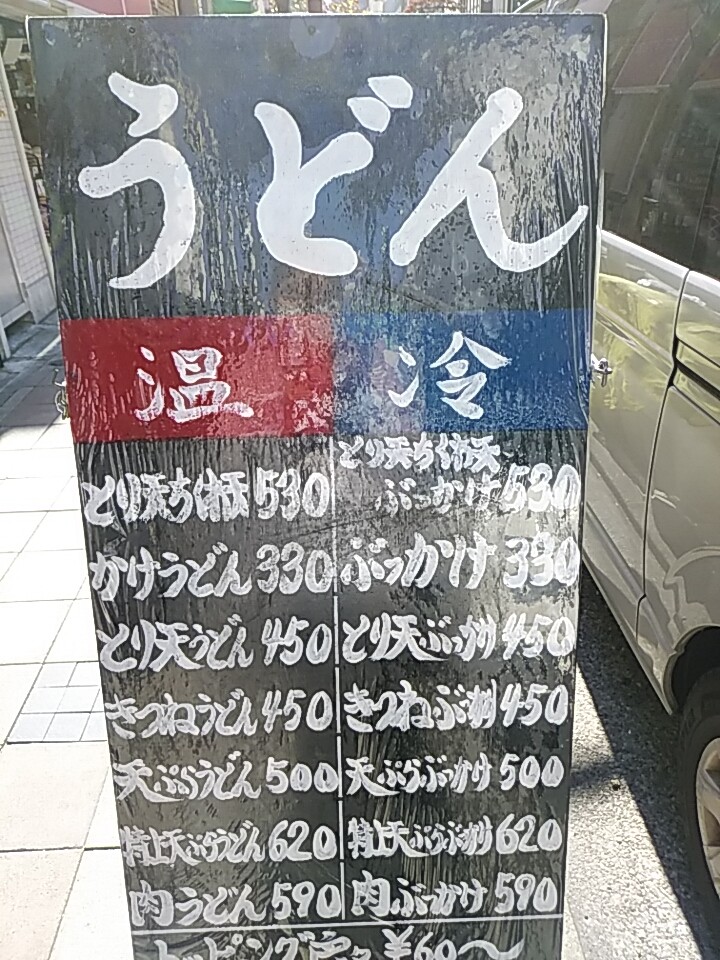 うどん
温 冷
とり天ちく天 530
とり天ちく天
ぶっかけ 530
かけうどん 330
ぶっかけ 330
とり天うどん 450
とり天ぶっかけ 450
きつねうどん 450
きつねぶっかけ 450
天ぷらうどん 500
天ぷらぶっかけ 500
特上天ぷらうどん 620
特上天ぷらぶっかけ 620
肉うどん 590
肉ぶっかけ 590
トッピング
¥60〜